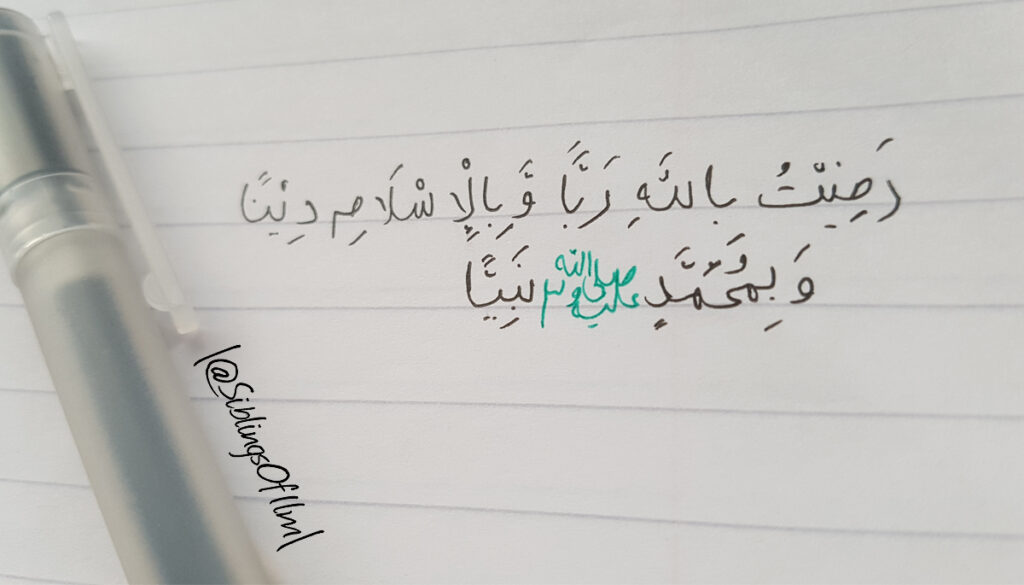 رَضِيْتُ بِاللّٰهِ رَبًّا وَّبِالْإِسْلَامِ دِيْنًا
وَبِمُحَمَّدٍ صلى الله عليه وسلم نَبِيًّا
|@SiblingsOfIlm|